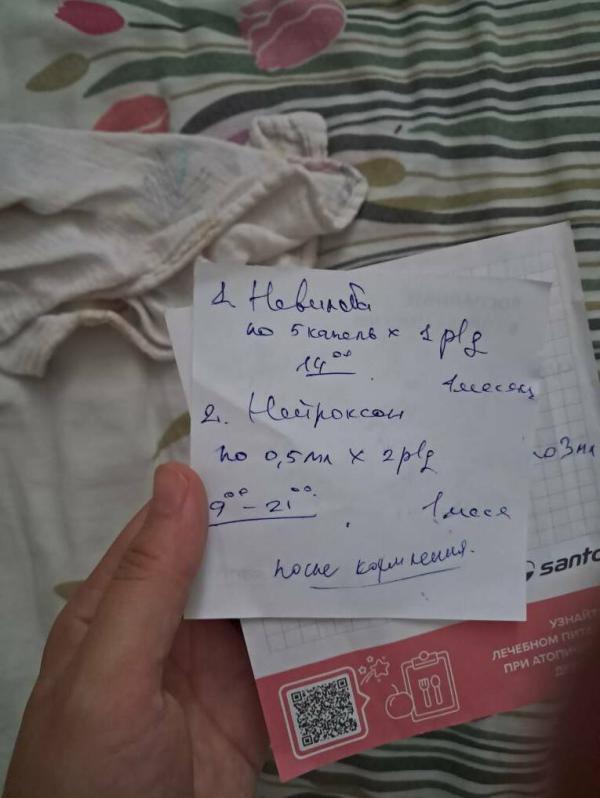 1. Невилаб
по 5 капель х 1 р/д
14⁰⁰
1 месяц
2. Нейроксон
по 0,5 мл х 2 р/д
9⁰⁰ - 21⁰⁰
1 меся
после кормления.
santo
УЗНАЙТ
ЛЕЧЕБНОМ ПИТА
ПРИ АТОПИЧ